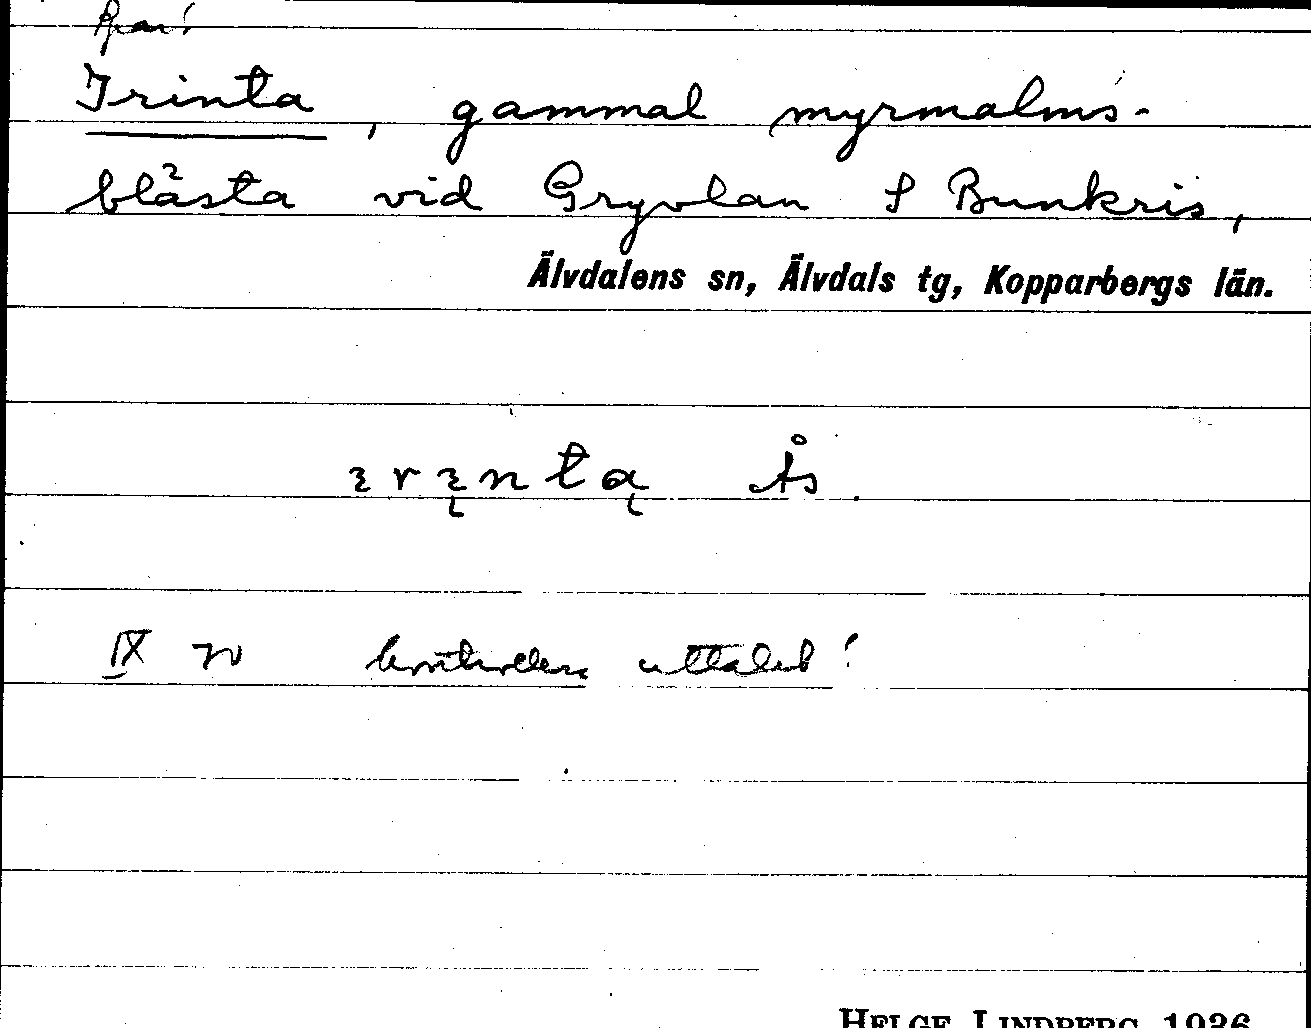 Irinta, gammal myrmalms-
blästa vid Gryvlan S Bunkris,
Älvdalens sn, Älvdals tg, Kopparbergs län.
Ås.
IX kontrollera uttalet!
HELGE LINDBERG 1936